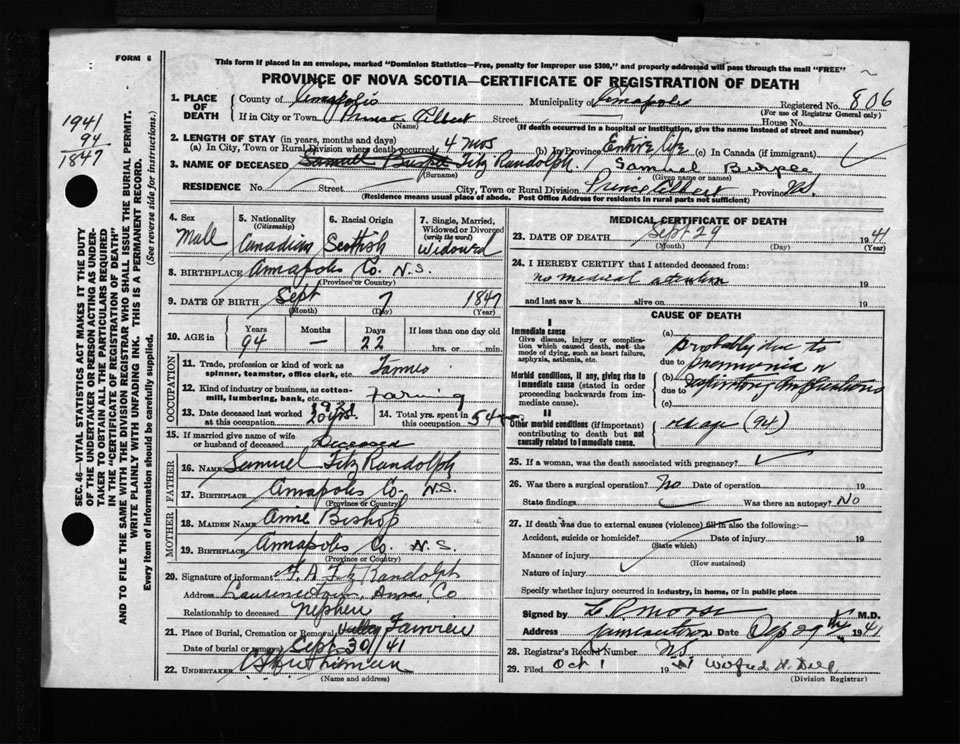 FORM 6
This form if placed in an envelope, marked "Dominion Statistics—Free, penalty for improper use $300," and properly addressed will pass through the mail "FREE"
PROVINCE OF NOVA SCOTIA—CERTIFICATE OF REGISTRATION OF DEATH
1941
94
1847
SEC. 46—VITAL STATISTICS ACT MAKES IT THE DUTY
OF THE UNDERTAKER OR PERSON ACTING AS UNDER-
TAKER TO OBTAIN ALL THE PARTICULARS REQUIRED
IN THE "CERTIFICATE OF REGISTRATION OF DEATH"
AND TO FILE THE SAME WITH THE DIVISION REGISTRAR WHO SHALL ISSUE THE BURIAL PERMIT.
WRITE PLAINLY WITH UNFADING INK. THIS IS A PERMANENT RECORD.
Every item of Information should be carefully supplied. (See reverse side for instructions.)
1. PLACE OF DEATH County of Annapolis Municipality of Annapolis Registered No. 806
(For use of Registrar General only)
If in City or Town Prince Albert Street House No.
(Name) (If death occurred in a hospital or institution, give the name instead of street and number)
2. LENGTH OF STAY (in years, months and days)
(a) In City, Town or Rural Division where death occurred 4 mos (b) In Province Entire life (c) In Canada (if immigrant)
3. NAME OF DECEASED Samuel Fitz Randolph. Samuel
(Surname) (Given name or names)
RESIDENCE No. Street City, Town or Rural Division Prince Albert Province N.S.
(Residence means usual place of abode. Post Office Address for residents in rural parts not sufficient)
4. Sex Male
5. Nationality (Citizenship) Canadian
6. Racial Origin Scottish
7. Single, Married, Widowed or Divorced (write the word) Widowed
8. BIRTHPLACE Annapolis Co. N.S.
(Province or Country)
9. DATE OF BIRTH Sept 7 1847
(Month) (Day) (Year)
10. AGE in Years 94 Months — Days 22 If less than one day old
hrs. or min.
OCCUPATION
11. Trade, profession or kind of work as spinner, teamster, office clerk, etc. Farmer
12. Kind of industry or business, as cotton-mill, lumbering, bank, etc. Farming
13. Date deceased last worked at this occupation
14. Total yrs. spent in this occupation 54
15. If married give name of wife or husband of deceased Deceased
FATHER
16. NAME Samuel Fitz Randolph
17. BIRTHPLACE Annapolis Co. N.S.
(Province or Country)
MOTHER
18. MAIDEN NAME Annie Bishop
19. BIRTHPLACE Annapolis Co. N.S.
(Province or Country)
20. Signature of informant Fitz Randolph
Address Lawrencetown, Annap. Co
Relationship to deceased Nephew
21. Place of Burial, Cremation or Removal Fairview
Date of burial or removal Sept. 30/41
22. UNDERTAKER
(Name and address)
MEDICAL CERTIFICATE OF DEATH
23. DATE OF DEATH Sept 29 1941
(Month) (Day)
24. I HEREBY CERTIFY that I attended deceased from:
no medical attention 19
and last saw h alive on 19
CAUSE OF DEATH
I
Immediate cause
Give disease, injury or complication which caused death, not the mode of dying, such as heart failure, asphyxia, asthenia, etc.
Morbid conditions, if any, giving rise to immediate cause (stated in order proceeding backwards from immediate cause).
II
Other morbid conditions (if important) contributing to death but not causally related to immediate cause.
(a) probably due to
due to pneumonia
(b)
due to
(c)
old age (94)
25. If a woman, was the death associated with pregnancy?
26. Was there a surgical operation? No Date of operation 19
State findings Was there an autopsy? No
27. If death was due to external causes (violence) fill in also the following:—
Accident, suicide or homicide? Date of injury 19
(State which)
Manner of injury
(How sustained)
Nature of injury
Specify whether injury occurred in industry, in home, or in public place
Signed by Morse M.D.
Address Date 29 1941
28. Registrar's Record Number
29. Filed Oct 1 1941 Wilfred H.
(Division Registrar)